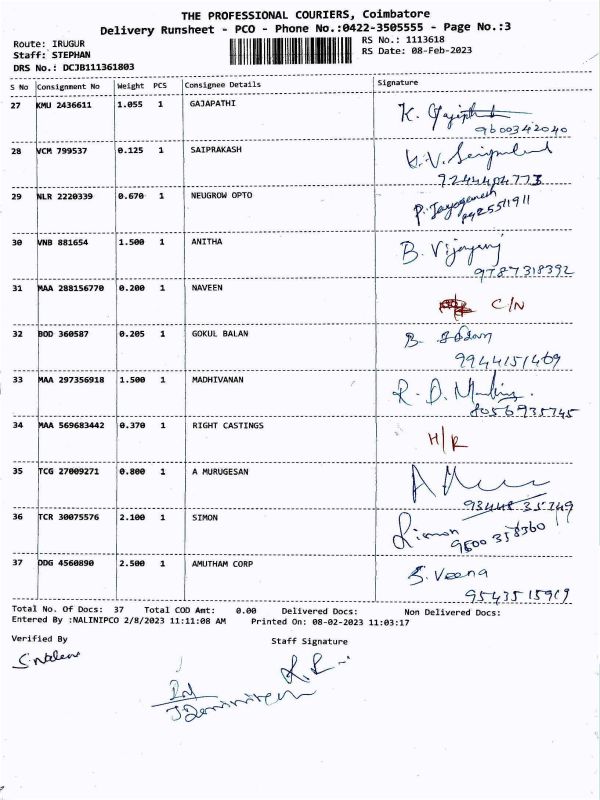 THE PROFESSIONAL COURIERS, Coimbatore
Delivery Runsheet - PCO - Phone No.:0422-3505555 - Page No.:3
Route: IRUGUR
Staff: STEPHAN
DRS No.: DCJB111361803
RS No.: 1113618
RS Date: 08-Feb-2023
S No Consignment No Weight PCS Consignee Details Signature
27 KMU 2436611 1.055 1 GAJAPATHI K.
9600342040
28 VCM 799537 0.125 1 SAIPRAKASH
9244404773
29 NLR 2220339 0.670 1 NEUGROW OPTO
30 VNB 881654 1.500 1 ANITHA B.
9787318392
31 MAA 288156770 0.200 1 NAVEEN C/N
32 BOD 360587 0.205 1 GOKUL BALAN B.
9944151469
33 MAA 297356918 1.500 1 MADHIVANAN R.D.
8056935745
34 MAA 569683442 0.370 1 RIGHT CASTINGS H/R
35 TCG 27009271 0.800 1 A MURUGESAN
93448 35749
36 TCR 30075576 2.100 1 SIMON
9600 358360
37 DDG 4560890 2.500 1 AMUTHAM CORP S. Veena
9543515919
Total No. Of Docs: 37 Total COD Amt: 0.00 Delivered Docs: Non Delivered Docs:
Entered By :NALINIPCO 2/8/2023 11:11:08 AM Printed On: 08-02-2023 11:03:17
Verified By Staff Signature